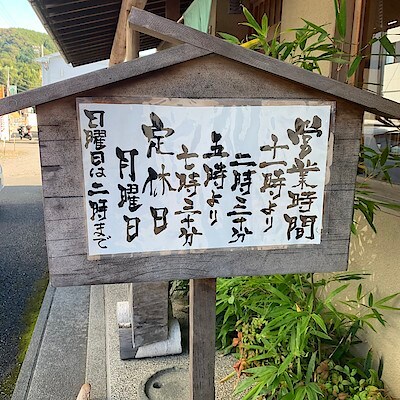 営業時間
十一時より
二時三十分
五時より
七時三十分
定休日
月曜日
日曜日は二時まで